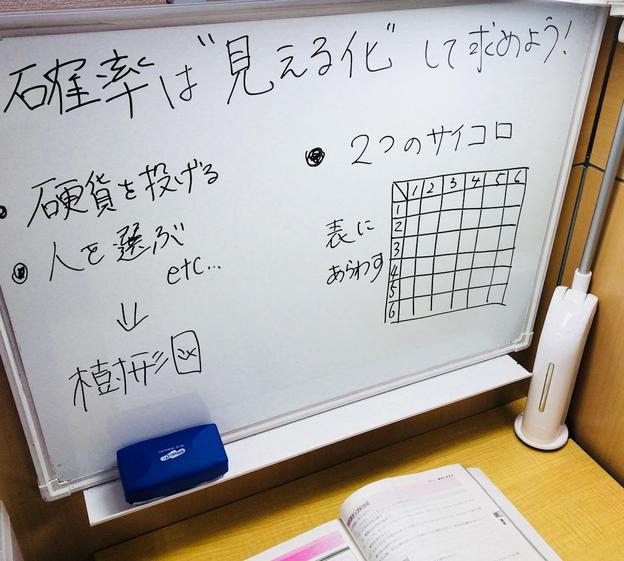 確率は"見える化"して求めよう!
● 硬貨を投げる
● 人を選ぶ
etc...
↓
樹形図
● 2つのサイコロ
表に
あらわす
1 2 3 4 5 6
1
2
3
4
5
6